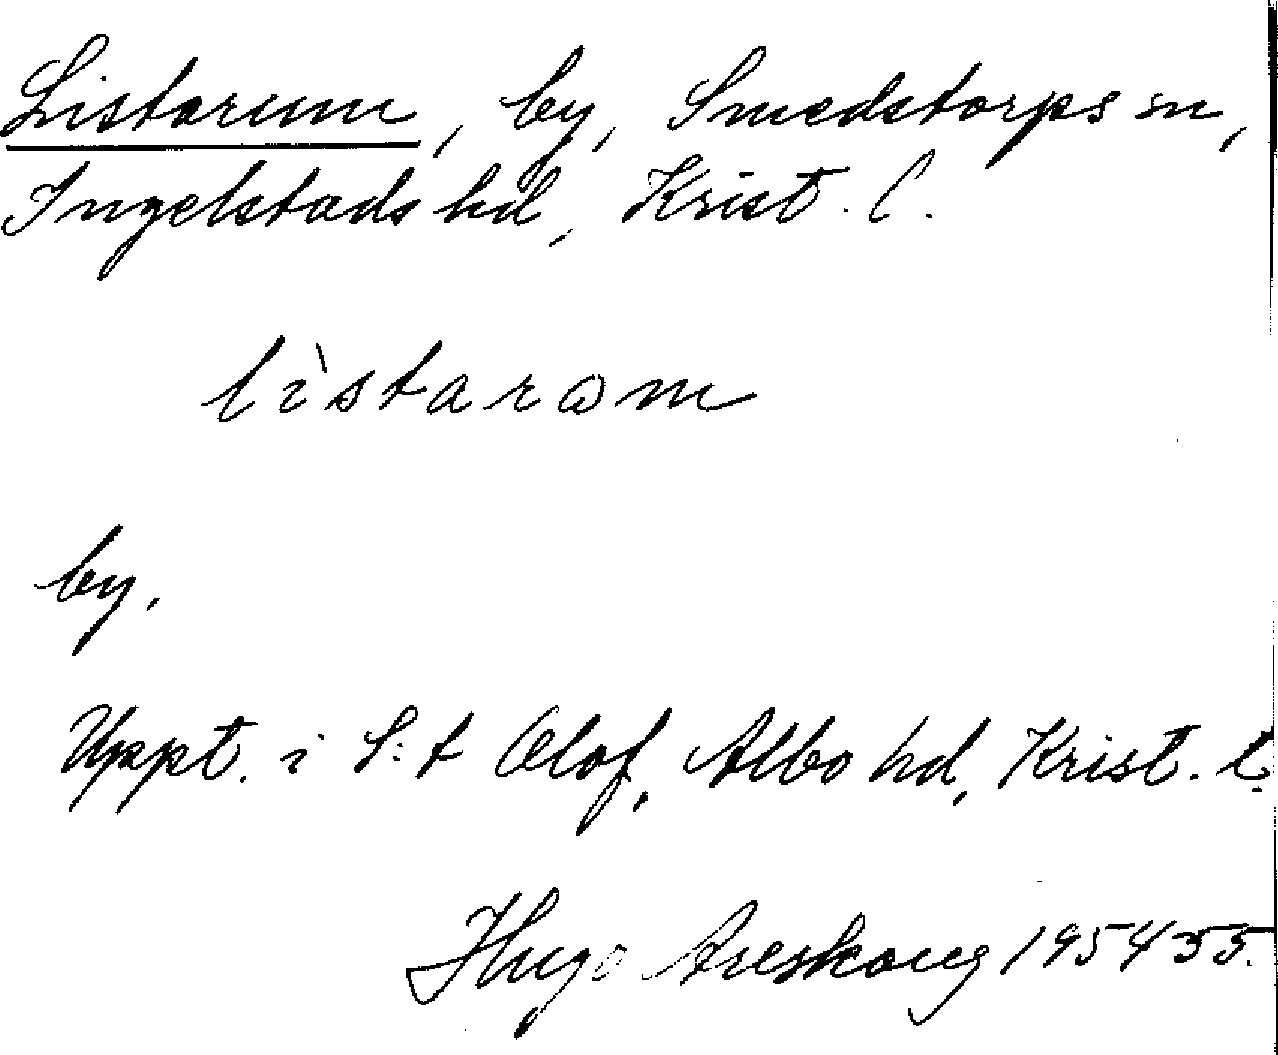 Listarum, by, Smedstorps sn,
Ingelstads hd, Krist. l.
lìstarɷm
by.
Uppt. i S:t Olof, Albo hd, Krist. l.
Hugo Areskoug 1954-55.